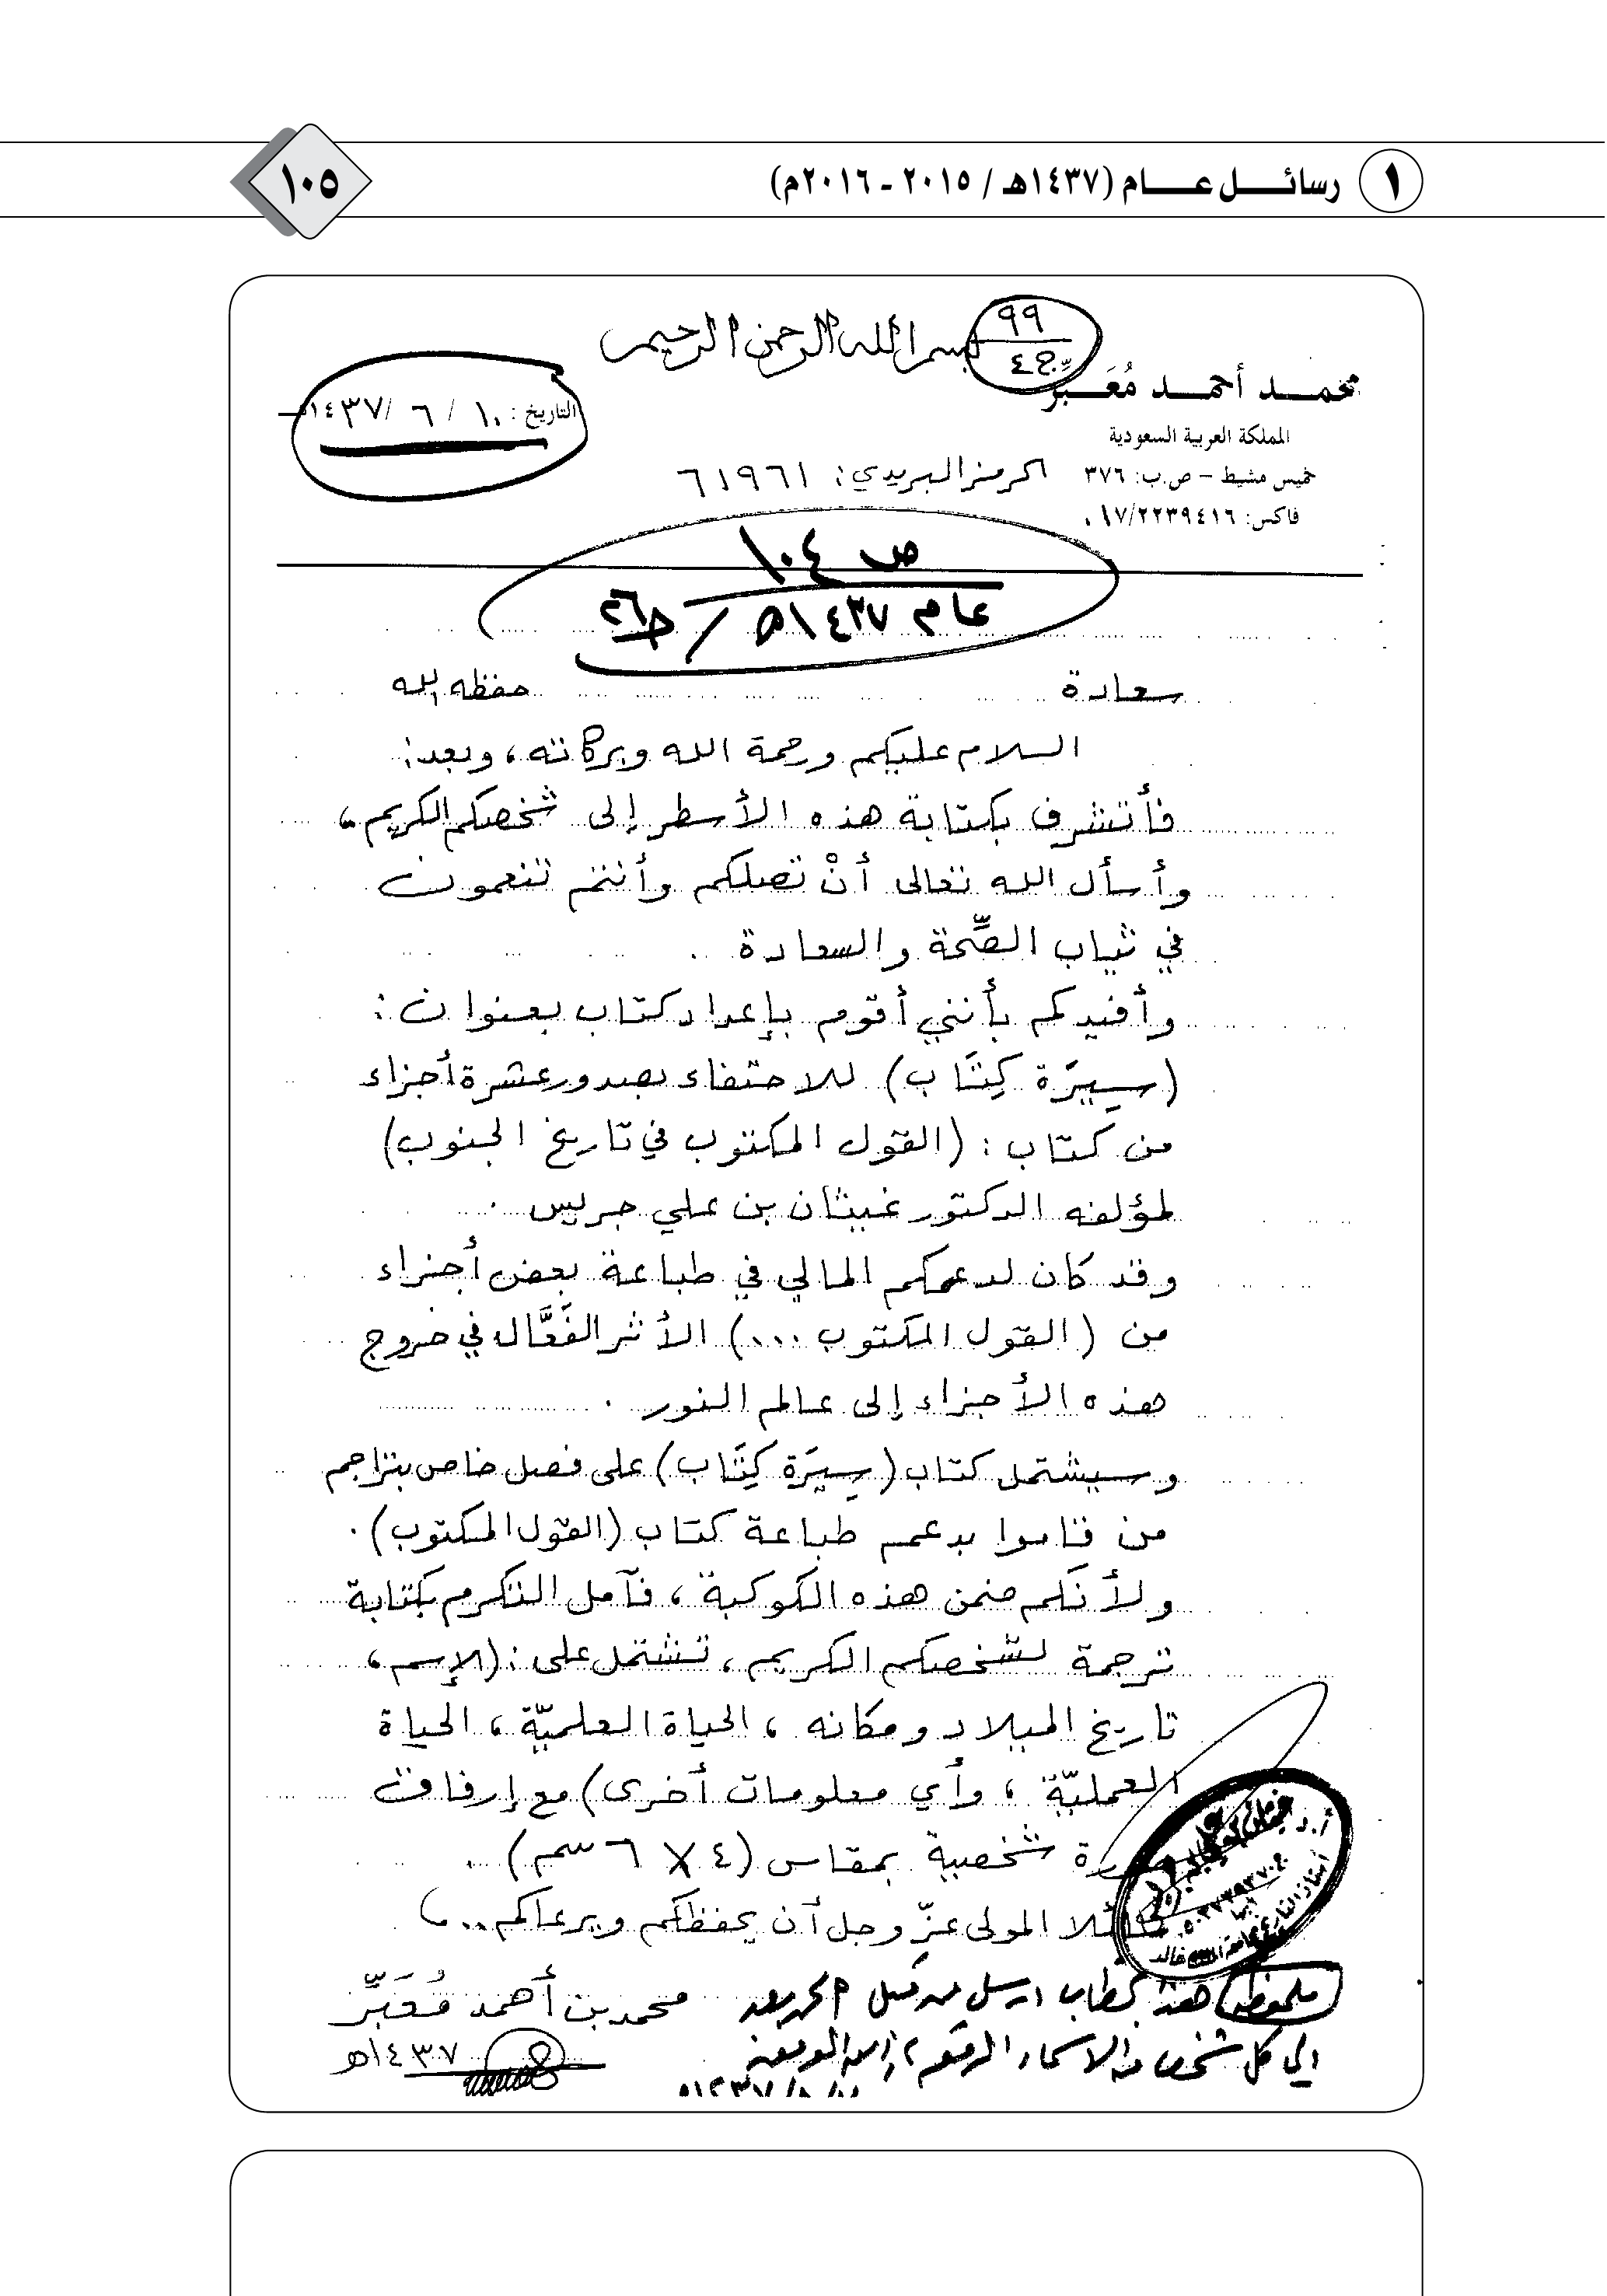 ١ رسائل عام (١٤٣٧هـ / ٢٠١٥ - ٢٠١٦م)
١٠٥
بسم الله الرحمن الرحيم
٩٩
ج٤
محمد أحمد مُعَبِّر
المملكة العربية السعودية
خميس مشيط - ص.ب: ٣٧٦
الرمز البريدي: ٦١٩٦١
فاكس: ٠١٧/٢٢٣٩٤١٦
التاريخ: ١٠ / ٦ / ١٤٣٧هـ
ص ١٠٤
عام ١٤٣٧هـ /
سعادة حفظه الله
السلام عليكم ورحمة الله وبركاته، وبعد:
فأتشرف بكتابة هذه الأسطر إلى شخصكم الكريم،
وأسأل الله تعالى أنْ تصلكم وأنتم تنعمون
في ثياب الصِّحة والسعادة.
وأفيدكم بأنني أقوم بإعداد كتاب بعنوان:
(سِيرَة كِتَاب) للاحتفاء بصدور عشرة أجزاء
من كتاب: (القول المكتوب في تاريخ الجنوب)
لمؤلفه الدكتور غيثان بن علي جريس.
وقد كان لدعمكم المالي في طباعة بعض أجزاء
من (القول المكتوب ...) الأثر الفَعَّال في خروج
هذه الأجزاء إلى عالم النور.
وسيشتمل كتاب (سِيرَة كِتَاب) على فصل خاص بتراجم
من قاموا بدعم طباعة كتاب (القول المكتوب).
ولأنكم ضمن هذه الكوكبة، فآمل التكرم بكتابة
ترجمة لشخصكم الكريم، تشتمل على: (الإسم،
تاريخ الميلاد ومكانه، الحياة العلميّة، الحياة
العمليّة، وأي معلومات أخرى) مع إرفاق
صورة شخصية بمقاس (٤ X ٦ سم).
سائلا المولى عزّ وجل أن يحفظكم ويرعاكم..،
محمد بن أحمد مُعَبِّر
١٤٣٧هـ
ملحوظة هذا خطاب أرسل من قبل
إلى كل شخص من الأسماء